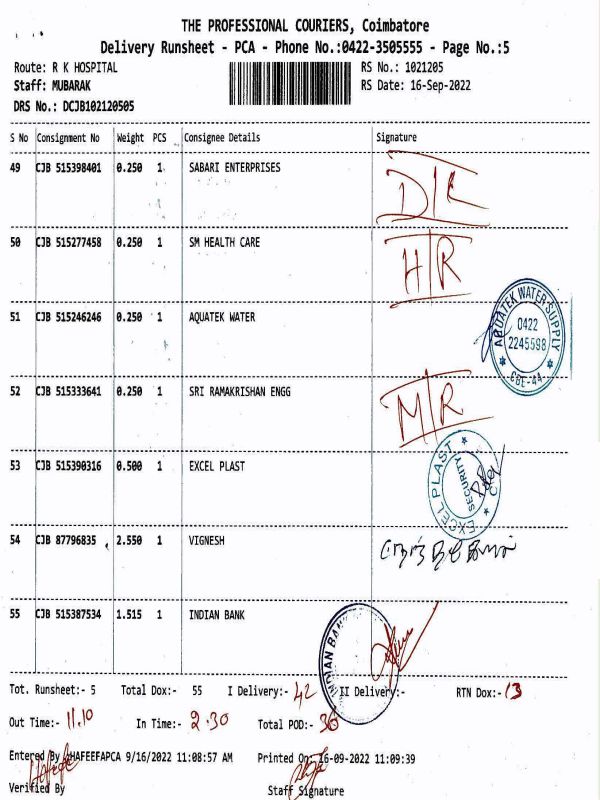 THE PROFESSIONAL COURIERS, Coimbatore
Delivery Runsheet - PCA - Phone No.:0422-3505555 - Page No.:5
Route: R K HOSPITAL RS No.: 1021205
Staff: MUBARAK RS Date: 16-Sep-2022
DRS No.: DCJB102120505
S No Consignment No Weight PCS Consignee Details Signature
49 CJB 515398401 0.250 1 SABARI ENTERPRISES D/R
50 CJB 515277458 0.250 1 SM HEALTH CARE H/R
51 CJB 515246246 0.250 1 AQUATEK WATER
AQUATEK WATER SUPPLY
0422
2245598
CBE-44
52 CJB 515333641 0.250 1 SRI RAMAKRISHAN ENGG M/R
53 CJB 515390316 0.500 1 EXCEL PLAST
EXCEL PLAST
SECURITY
54 CJB 87796835 2.550 1 VIGNESH
55 CJB 515387534 1.515 1 INDIAN BANK
INDIAN BANK
Tot. Runsheet:- 5 Total Dox:- 55 I Delivery:- 42 II Delivery:- RTN Dox:- 13
Out Time:- 11.10 In Time:- 2.30 Total POD:- 36
Entered By :HAFEEFAPCA 9/16/2022 11:08:57 AM Printed On: 16-09-2022 11:09:39
Verified By Staff Signature